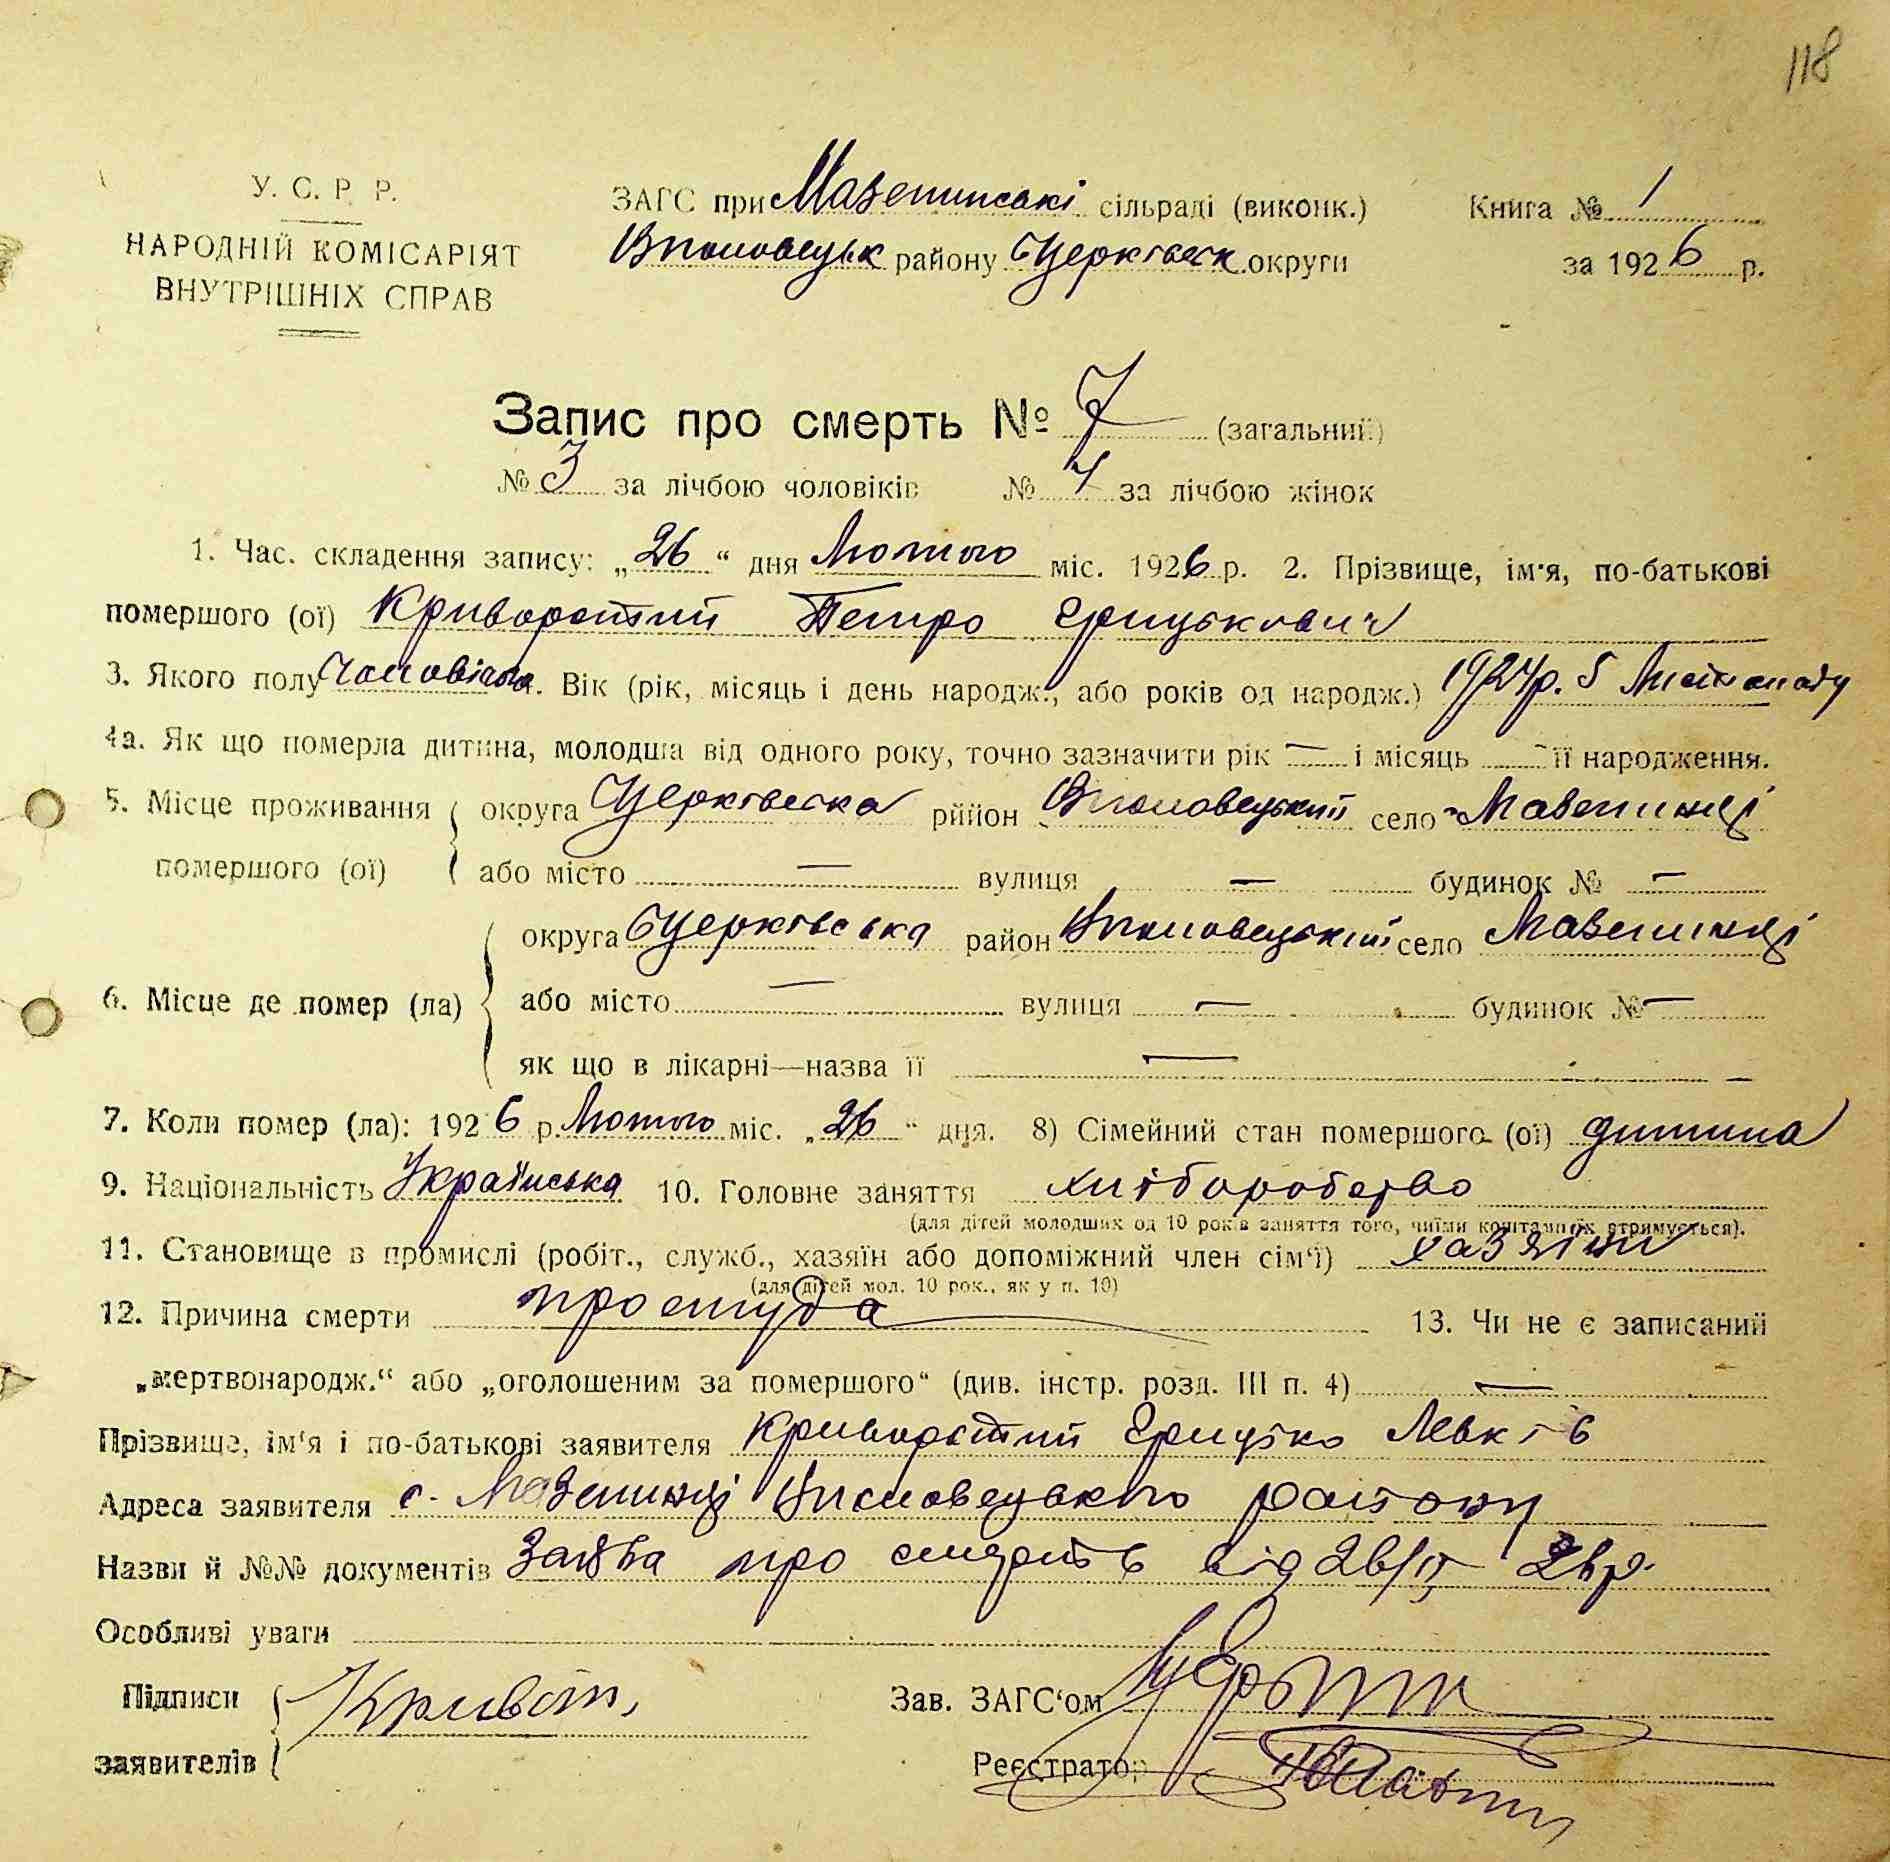 118
У. С. Р. Р.
НАРОДНІЙ КОМІСАРІЯТ
ВНУТРІШНІХ СПРАВ
ЗАГС при Мазепинські сільраді (виконк.)
району Церківськ округи
Книга № 1
за 1926 р.
Запис про смерть № 7 (загальний)
№ 3 за лічбою чоловіків № 4 за лічбою жінок
1. Час. складення запису: „26“ дня Лютого міс. 1926 р. 2. Прізвище, ім'я, по-батькові
помершого (ої) Криворотий Петро Грицькович
3. Якого полу Чоловіча 4. Вік (рік, місяць і день народж., або років од народж.) 1924р. 5 Листопаду
4а. Як що померла дитина, молодша від одного року, точно зазначити рік — і місяць — її народження.
5. Місце проживання
помершого (ої)
округа район село Мазепинці
або місто — вулиця — будинок № —
6. Місце де помер (ла)
округа район село Мазепинці
або місто — вулиця — будинок № —
як що в лікарні—назва її —
7. Коли помер (ла): 1926 р. Лютого міс. „26“ дня. 8) Сімейний стан помершого (ої) дитина
9. Національність Українська 10. Головне заняття хліборобство
(для дітей молодших од 10 років заняття того, чиїми коштами їх утримується).
11. Становище в промислі (робіт., служб., хазяїн або допоміжний член сім'ї) хазяїн
(для дітей мол. 10 рок., як у п. 10)
12. Причина смерти простуда 13. Чи не є записаний
„мертвонародж.“ або „оголошеним за помершого“ (див. інстр. розд. III п. 4) —
Прізвище, ім'я і по-батькові заявителя Криворотий Грицько Левків
Адреса заявителя с. Мазепинці району
Назви й №№ документів Заява про смерть від 26/II 26р.
Особливі уваги
Підписи
заявителів
Зав. ЗАГС'ом
Реєстратор